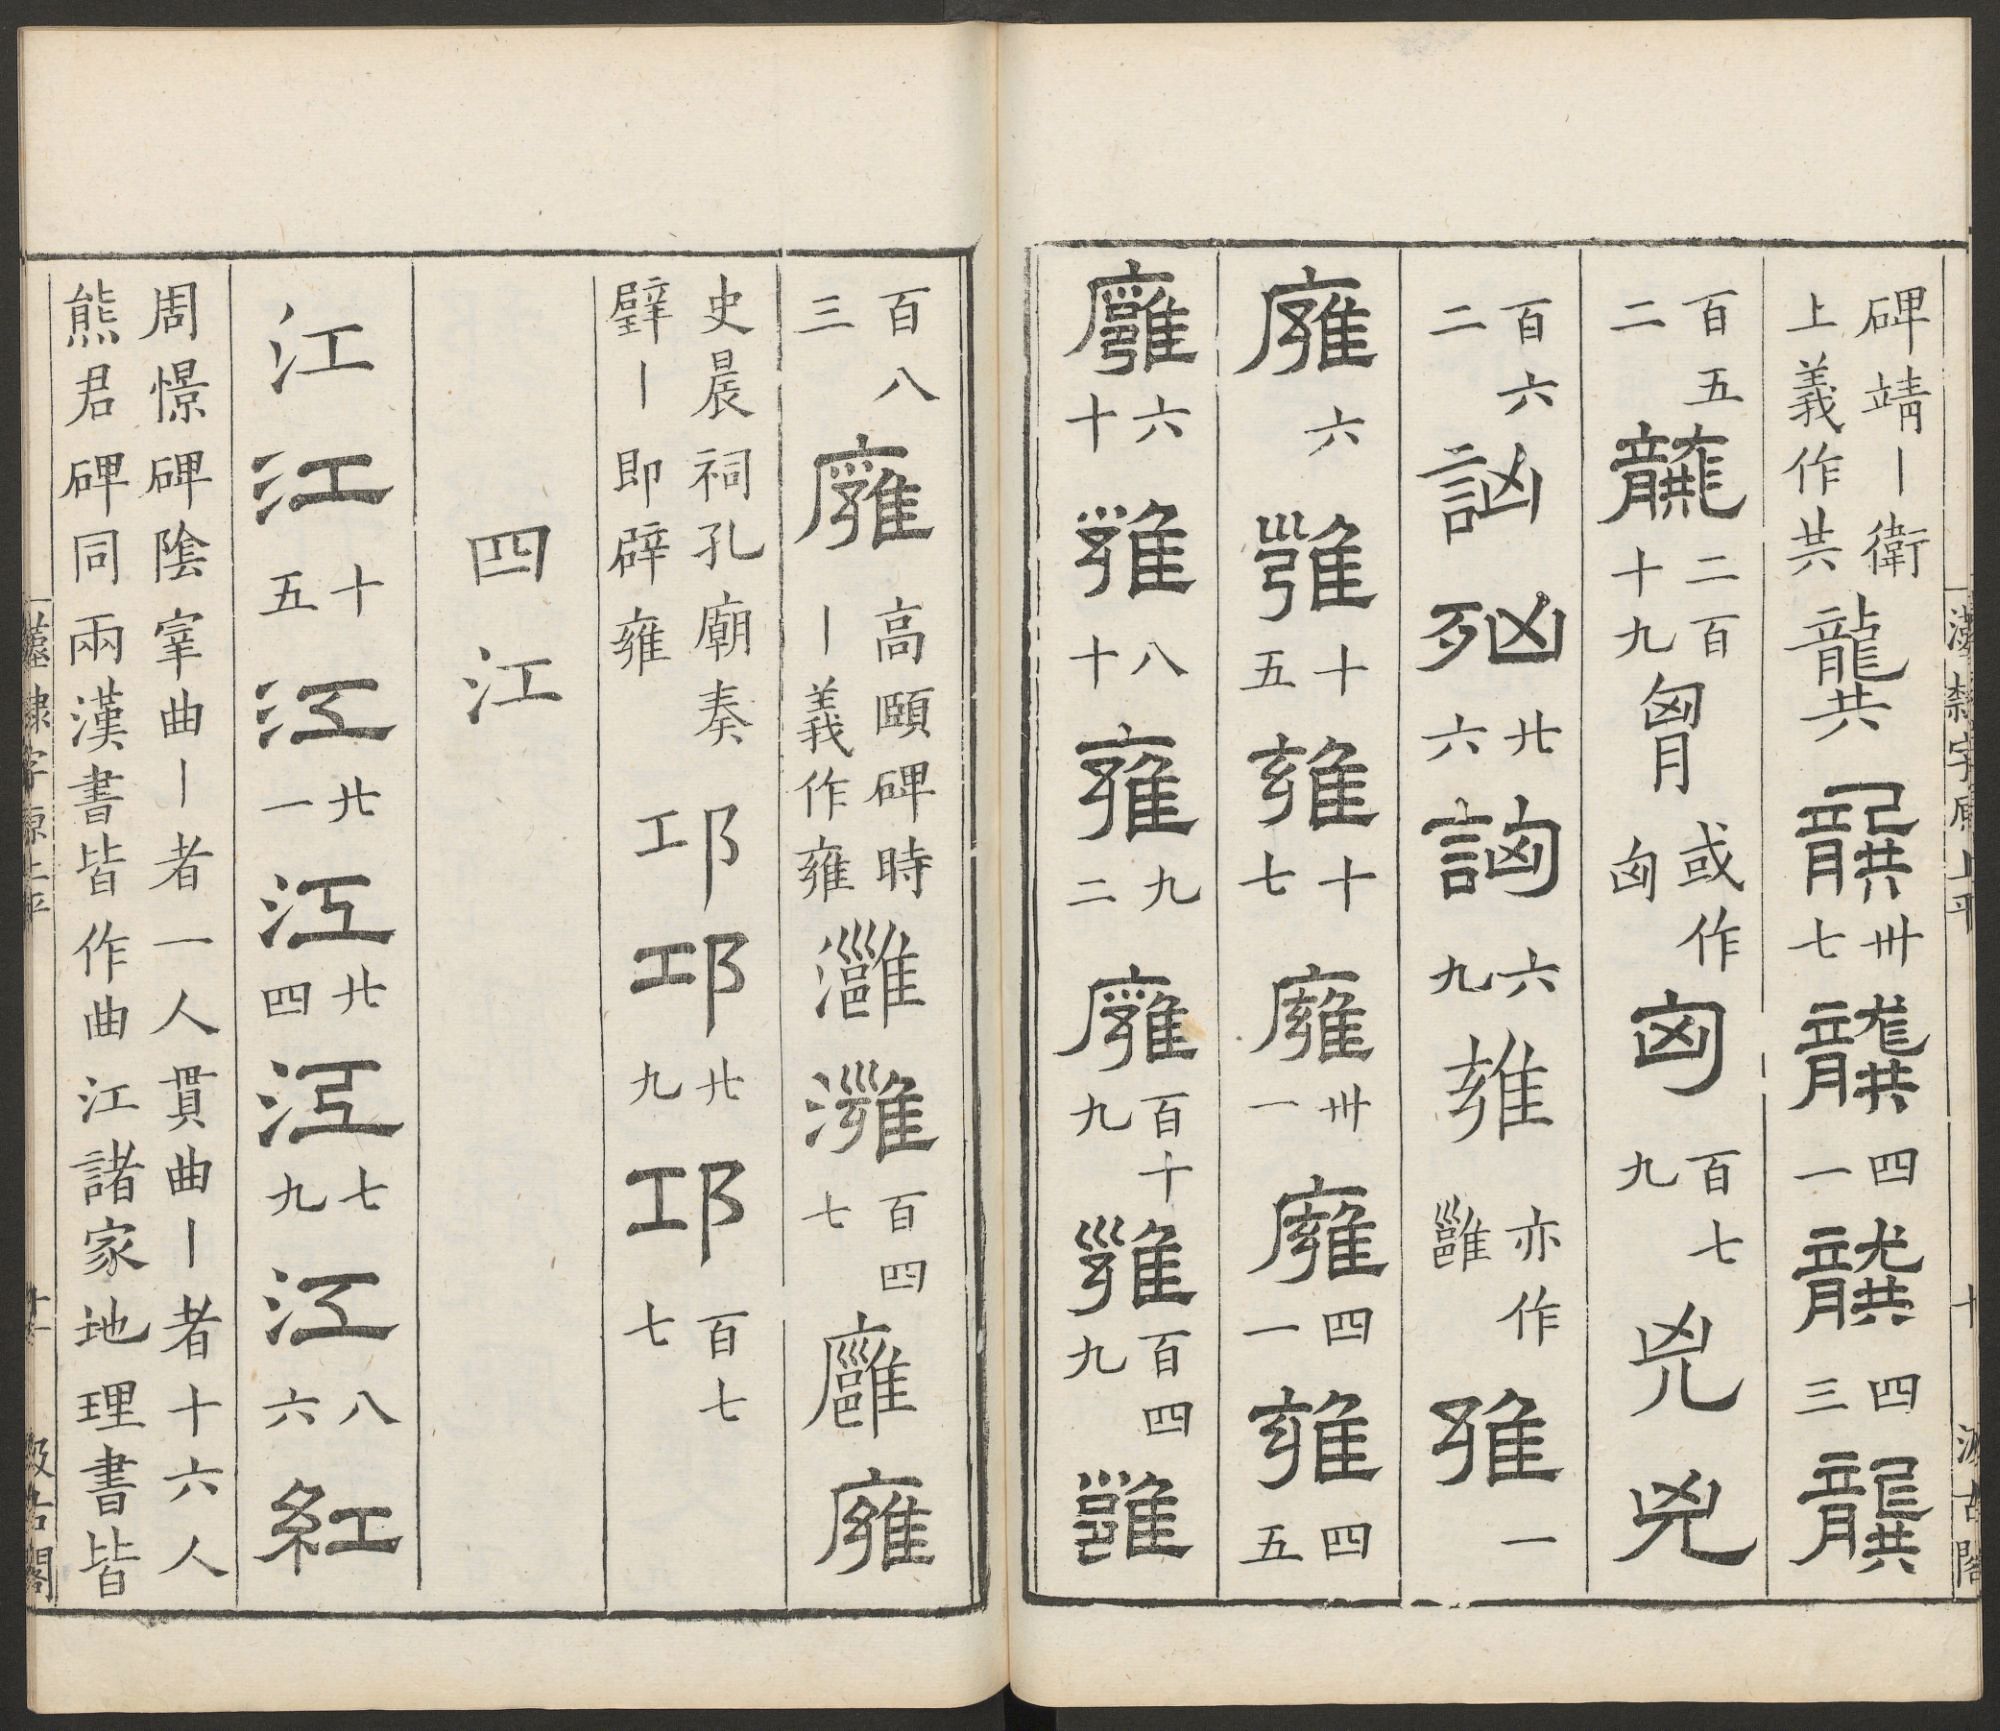 漢隸字原上平 十 汲古閣
碑靖丨衛上義作共龔龔卅七龔四一龔四三龔
百五二龔二百十九胷或作匈匈百七九兇兇
百六二訩廿六詾六九雍亦作雝雍一
廱六雍十五雍十七廱卅一廱四一雍四五
廱六十雍八十雍九二廱百十九雝百四九雝
百八三廱高頤碑時丨義作雍灉灉百四七廱廱
史晨祠孔廟奏璧丨即辟雍邛邛廿九邛百七七
四江
江江十五江廿一江廿四江七九江八六紅
周憬碑陰宰曲丨者一人貫曲丨者十六人
熊君碑同兩漢書皆作曲江諸家地理書皆
漢隸字原上平 十一 汲古閣